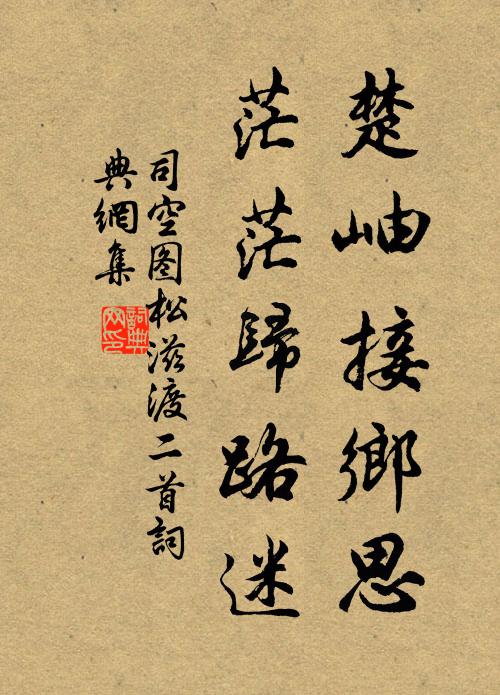 楚岫接鄉思
茫茫歸路迷
司空图松滋渡二首詞
典網集
詞典网印